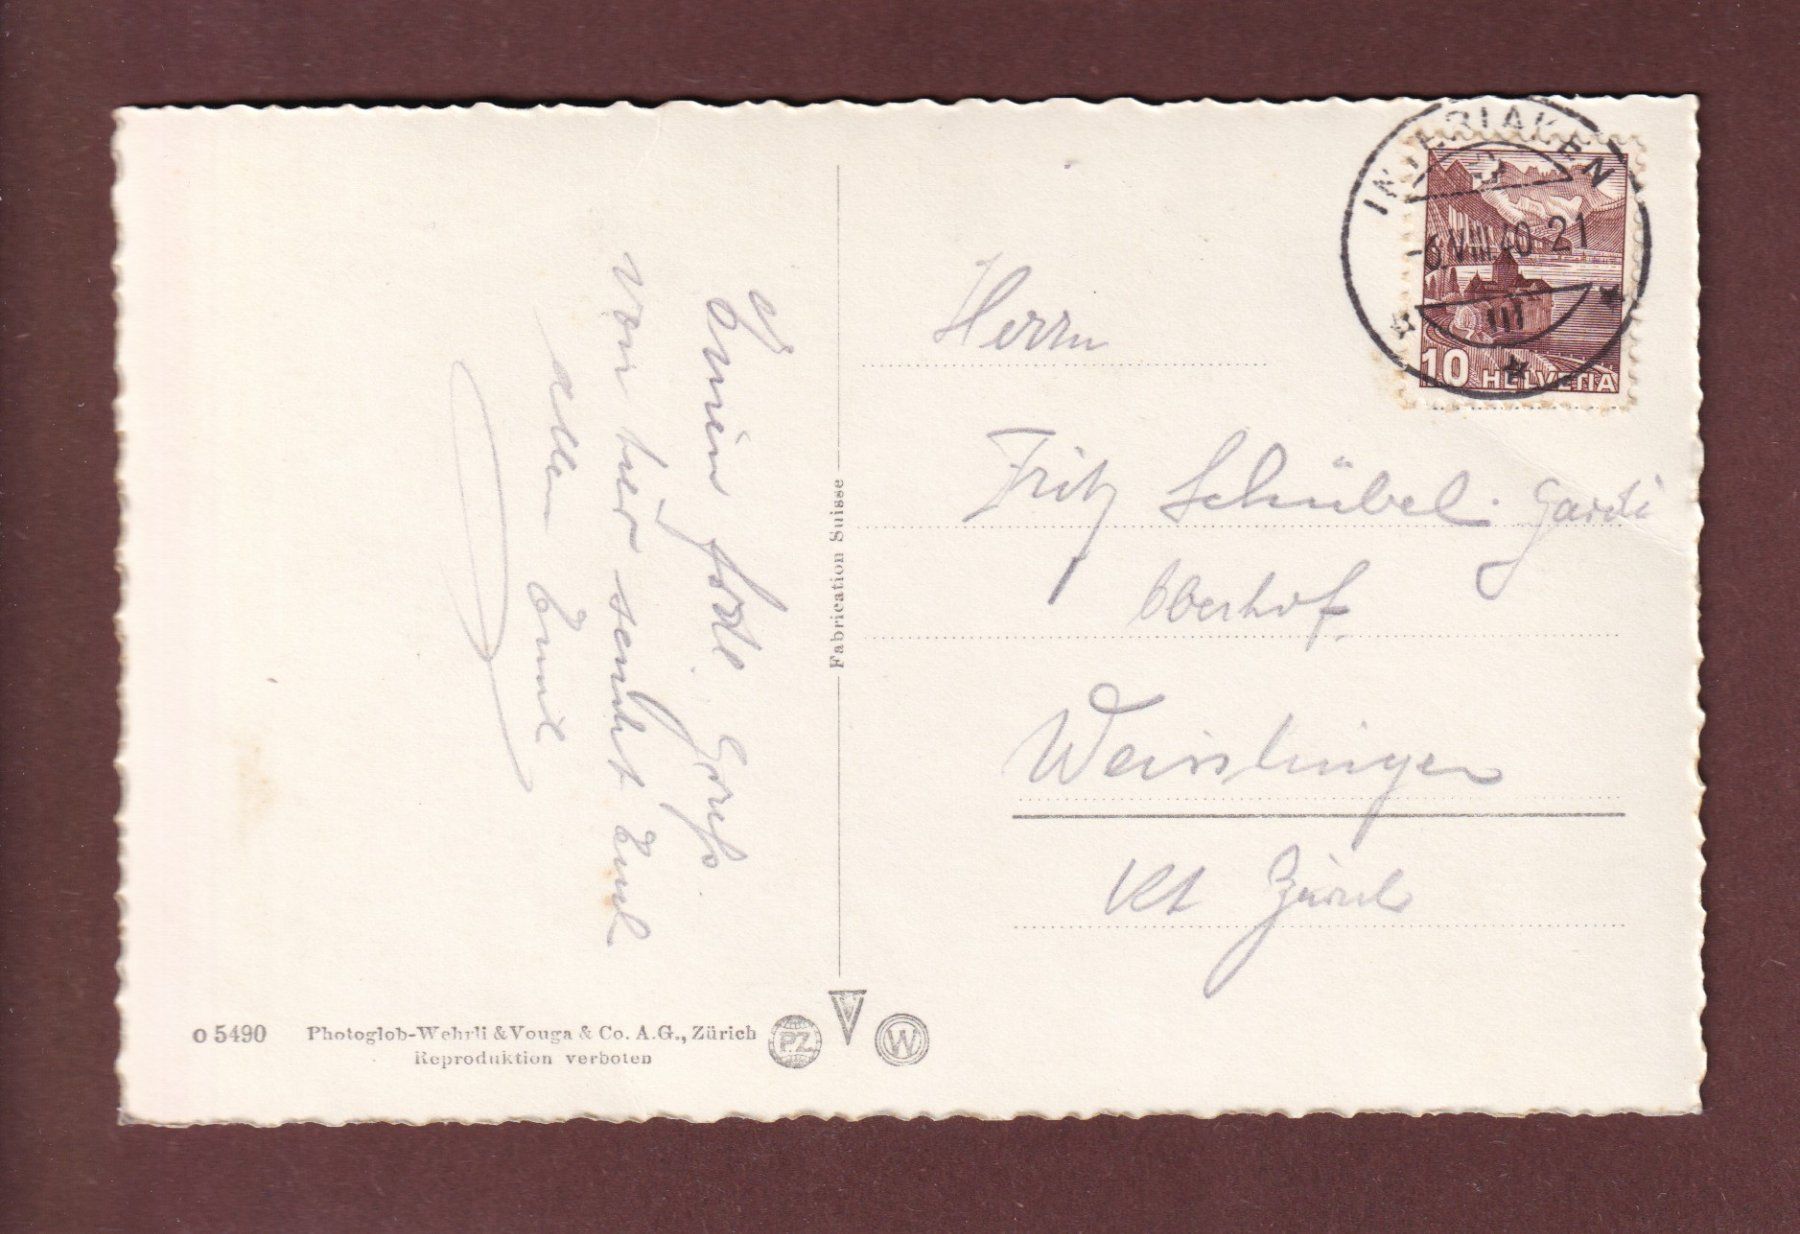 Einen frdl. Gruss
von hier sendet Euch
allen Emil
Fabrication Suisse
INTERLAKEN
-6.VIII.40-21
III
10 HELVETIA
Herrn
Fritz Schübel.
Oberhof
Weisslingen
Kt Zürich
o 5490 Photoglob-Wehrli & Vouga & Co. A.G., Zürich
Reproduktion verboten
P.Z
W